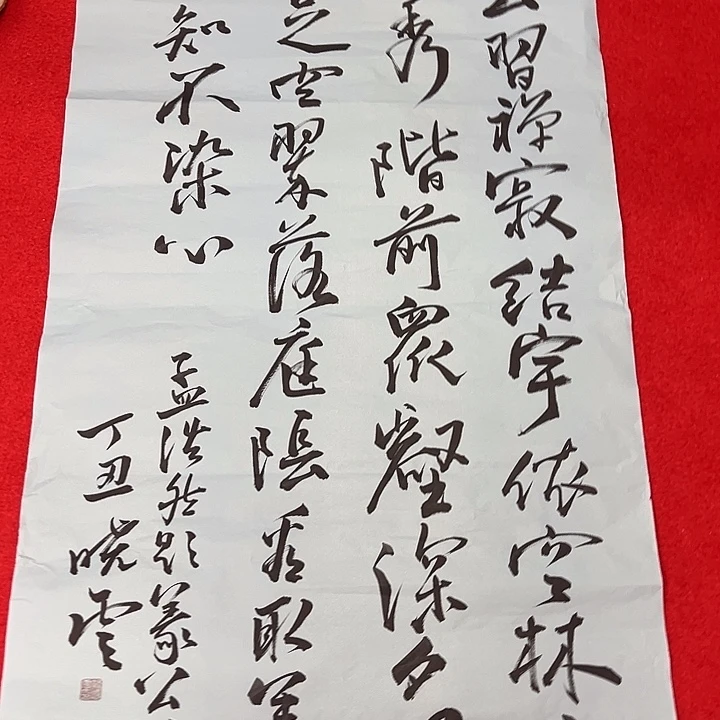 公習禪寂結宇依空林
秀階前眾壑深夕
足空翠落庭陰看取
知不染心
孟浩然題義公
丁丑曉雲